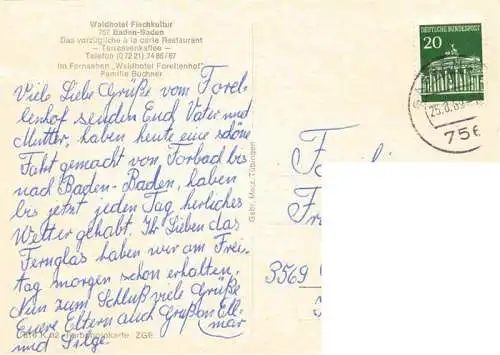 Waldhotel Fischkultur
757 Baden-Baden
Das vorzügliche à la carte Restaurant
— Terrassenkaffee —
Telefon (07221) 7486/87
Im Fernsehen „Waldhotel Forellenhof"
Familie Büchner
Viele Liebe Grüße vom Forel-
lenhof senden Euch Vater und
Mutter, haben heute eine schöne
Faht gemacht von Forbad bis
nach Baden-Baden, haben
bis jetzt jeden Tag herliches
Wetter gehabt. Ihr Lieben das
Fernglas haben wir am Frei-
tag morgen schon erhalten.
Nun zum Schluß viele Grüße
Euere Eltern auch Gruß an Ell-
mar
und Silge.
Gebr. Metz, Tübingen
ZGE
20
DEUTSCHE BUNDESPOST
25.8.69
756
3569